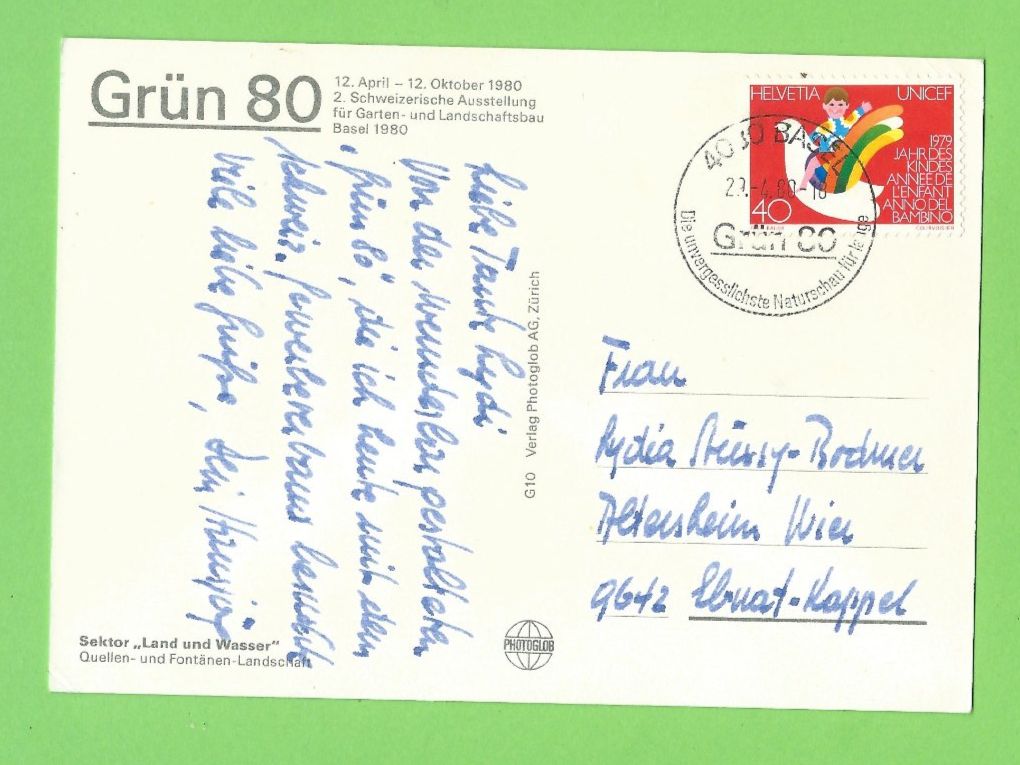 Grün 80
12. April – 12. Oktober 1980
2. Schweizerische Ausstellung
für Garten- und Landschaftsbau
Basel 1980
Liebe Tante Lydi
Von der wunderbar gestalteten
"Grün 80", die ich heute mit dem
Schweiz. Gewerbeverband besucht
Viele liebe Grüsse, Dein Hansjörg
Sektor „Land und Wasser"
Quellen- und Fontänen-Landschaft
G10 Verlag Photoglob AG, Zürich
PHOTOGLOB
HELVETIA UNICEF
1979
JAHR DES
KINDES
ANNEE DE
L'ENFANT
ANNO DEL
BAMBINO
40
COURVOISIER
BASEL
-4.80-18
Grün 80
Die unvergesslichste Naturschau für lange
Frau
Lydia Stüssy-Bodmer
Altersheim Wier
9642 Ebnat-Kappel